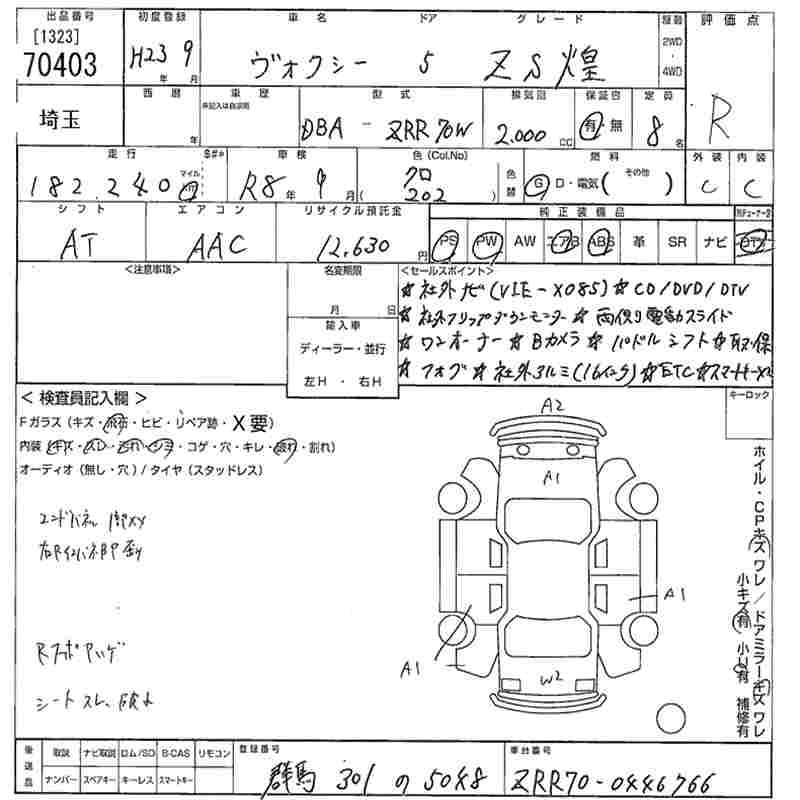 出品番号 初度登録 車名 ドア グレード 評価点
[1323]
70403 H23年 9月 ヴォクシー 5 ZS煌 2WD・4WD R
西暦 車歴 型式 排気囲 保証書 定員
埼玉 年 未記入は自家用 DBA - ZRR70W 2.000cc 有・無 8名
走行 車検 色(Col.No) 色替 燃料 外装 内装
182,240 マイル km R8年 9月 クロ 202 G D・電気(その他) C C
シフト エアコン リサイクル預託金 純正装備品
AT AAC 12,630円 PS PW AW エアB ABS 革 SR ナビ
<注意事項> 名変期限 <セールスポイント>
月 日
輸入車
ディーラー・並行
左H・右H
☆社外ナビ(VIE-X085)☆CD/DVD/DTV
☆社外フリップダウンモニター☆両側電動スライド
☆ワンオーナー☆Bカメラ☆パドルシフト☆取保
☆フォグ☆社外アルミ(16インチ)☆ETC☆スマートキーX2
キーロック
<検査員記入欄>
Fガラス(キズ・飛石・ヒビ・リペア跡・X要)
内装(キズ・スレ・汚れ・シミ・コゲ・穴・キレ・破れ・割れ)
オーディオ(無し・穴)/タイヤ(スタッドレス)
A2
A1
A1
A1
W2
エンドパネル
シートスレ
ホイル・CPキズワレ/ドアミラーキズワレ
小キズ有 小U有 補修有
後送品 取説 ナビ取説 ロム/SD B-CAS リモコン
ナンバー スペアキー キーレス スマートキー
登録番号 群馬 301 の 5048
車台番号 ZRR70-0446766